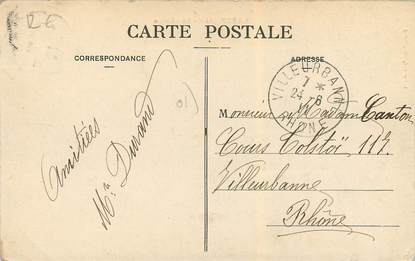 RG
CARTE POSTALE
CORRESPONDANCE
ADRESSE
VILLEURBANNE
7 *
24 - 8
RHONE
Amitiées
Mr Durand
Monsieur & Madame Canton
Cours Tolstoï 113
Villeurbanne
Rhône